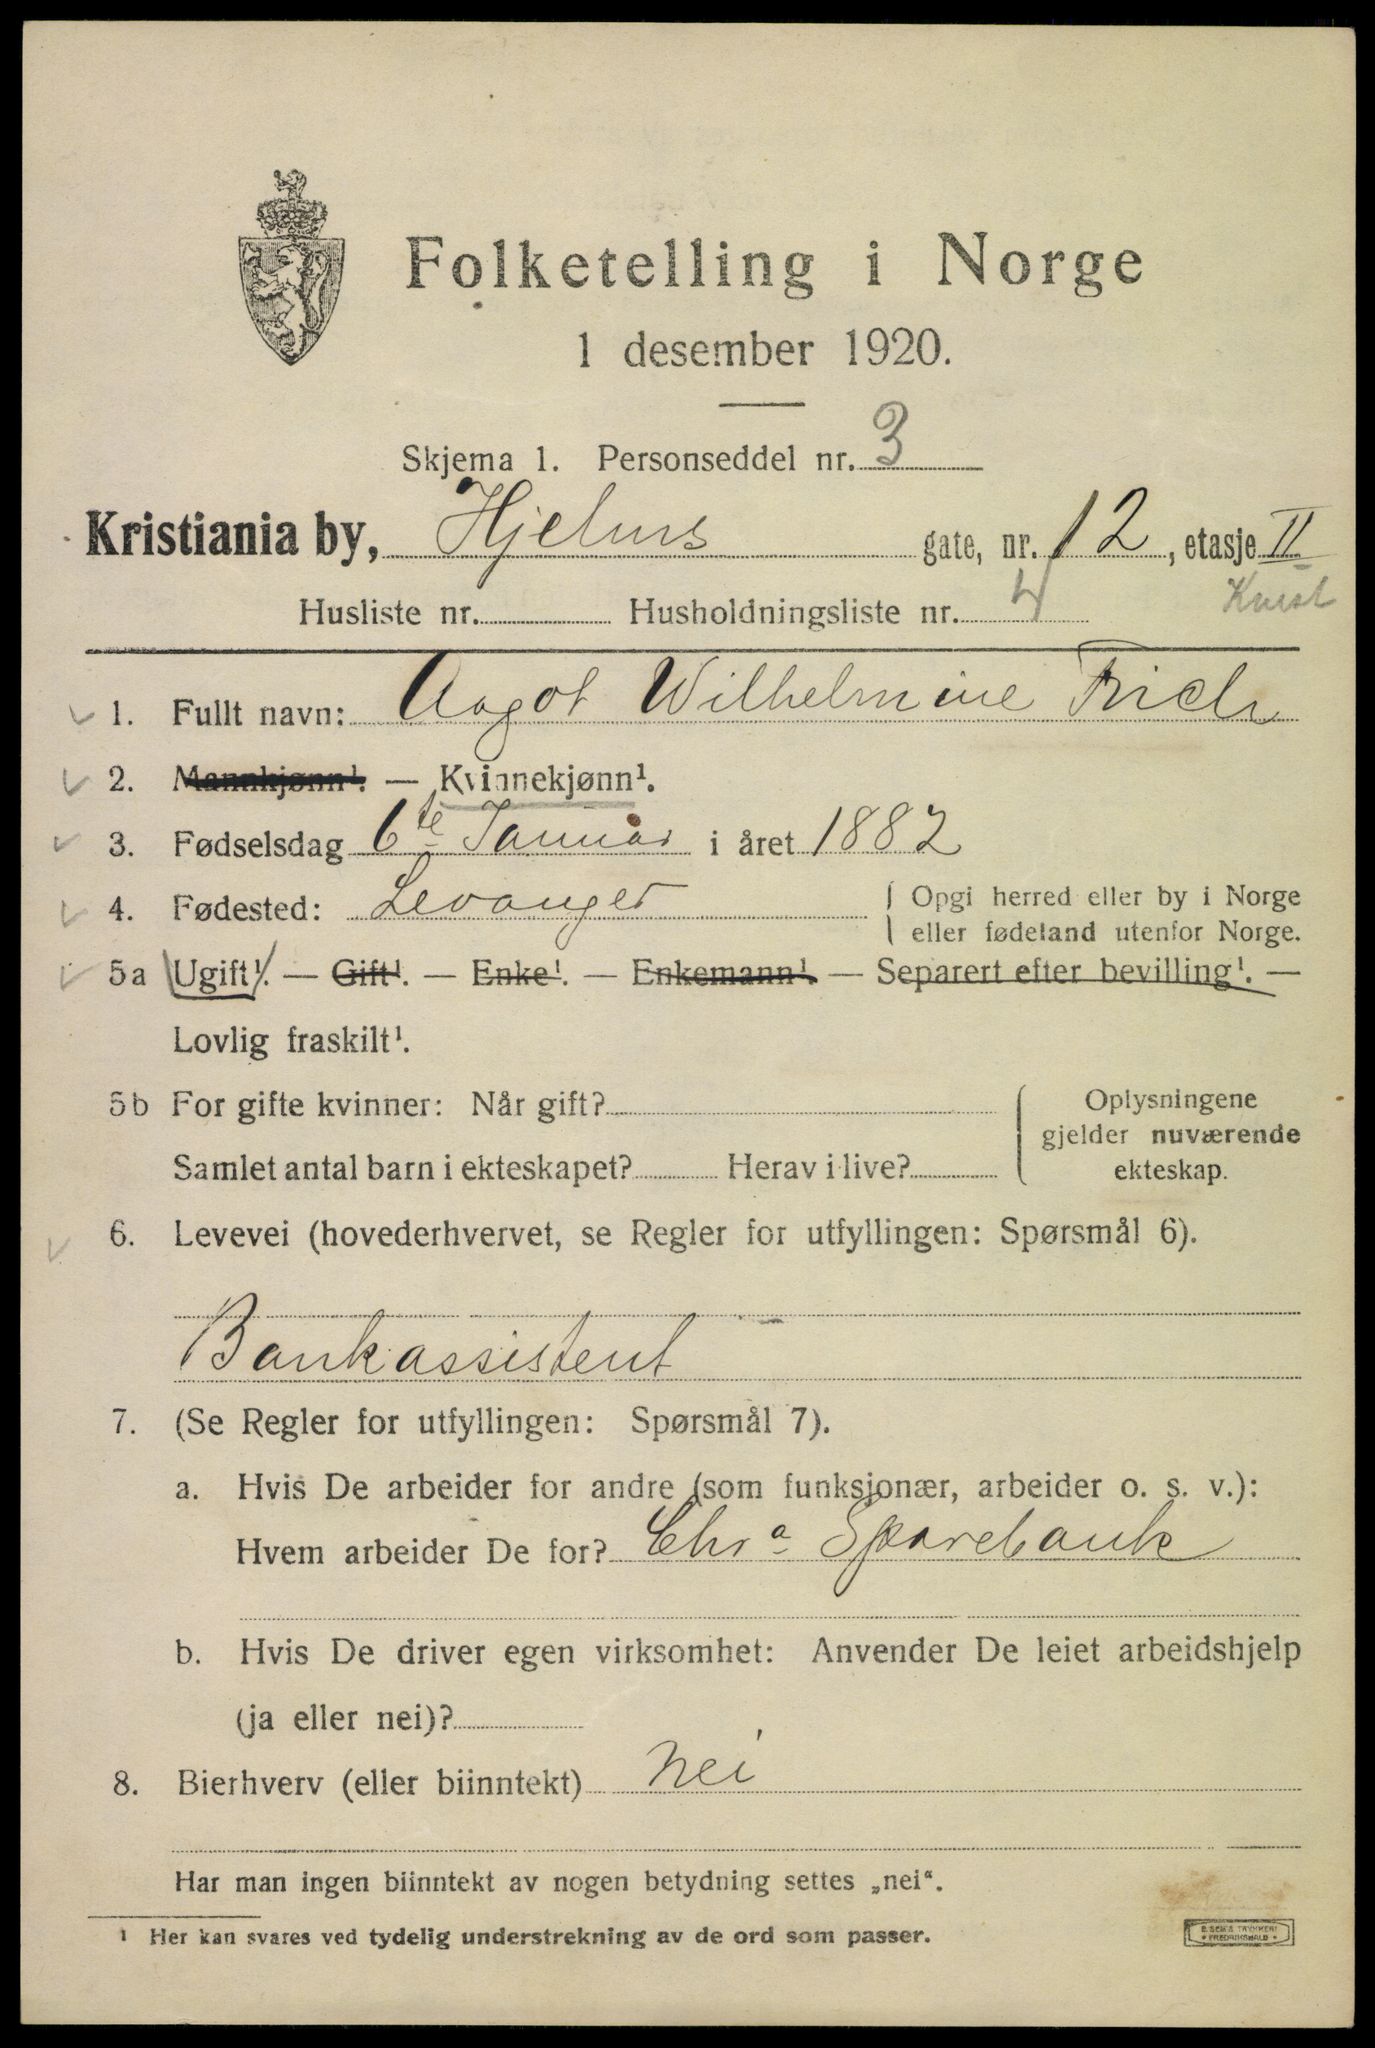 Folketelling i Norge
1 desember 1920.
Skjema 1. Personseddel nr. 3
Kristiania by, Hjelms gate, nr. 12, etasje II
Husliste nr. Husholdningsliste nr. 4 Kvist
1. Fullt navn: Aagot Wilhelmine Frich
2. Mannkjønn¹. — Kvinnekjønn¹.
3. Fødselsdag 6te Januar i året 1882
4. Fødested: Levanger { Opgi herred eller by i Norge
eller fødeland utenfor Norge.
5a Ugift¹. — Gift¹. — Enke¹. — Enkemann¹. — Separert efter bevilling¹. —
Lovlig fraskilt¹.
5b For gifte kvinner: Når gift? { Oplysningene
gjelder nuværende
Samlet antal barn i ekteskapet? Herav i live? ekteskap.
6. Levevei (hovederhvervet, se Regler for utfyllingen: Spørsmål 6).
Bankassistent
7. (Se Regler for utfyllingen: Spørsmål 7).
a. Hvis De arbeider for andre (som funksjonær, arbeider o. s. v.):
Hvem arbeider De for? Chra Sparebank
b. Hvis De driver egen virksomhet: Anvender De leiet arbeidshjelp
(ja eller nei)?
8. Bierhverv (eller biinntekt) Nei
Har man ingen biinntekt av nogen betydning settes „nei“.
¹ Her kan svares ved tydelig understrekning av de ord som passer.